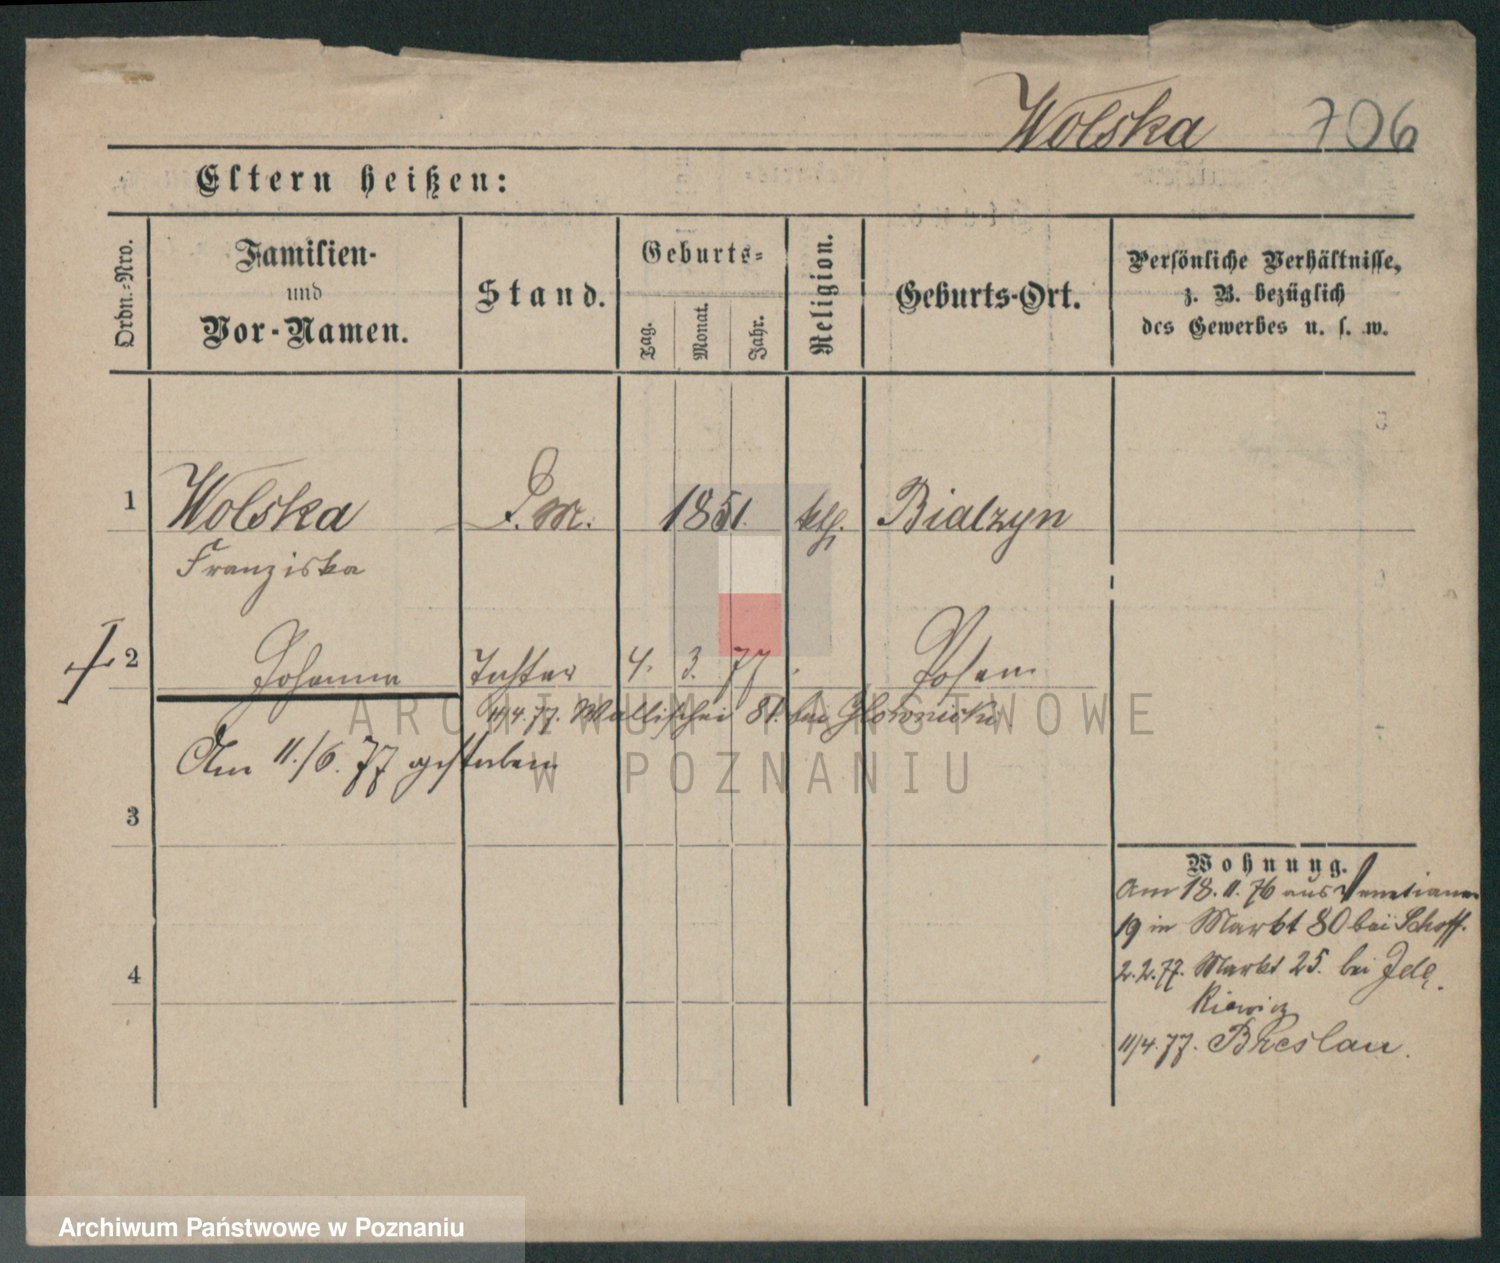 Wolska 706
Eltern heißen:
Ordn.-Nro.
Familien-
und
Vor-Namen.
Stand.
Geburts-
Tag.
Monat.
Jahr.
Religion.
Geburts-Ort.
Persönliche Verhältnisse,
z. B. bezüglich
des Gewerbes u. s. w.
1 Wolska 1851. kth. Bialzyn
Franziska
2 Johanna Tochter 4. 3. 77 Posen
11/4.77. Wallischei 81. bei
Am 11./6. 77 gestorben
3
Wohnung.
Am 18.11.76 aus
19 in Markt 80 bei Schoff.
4
2.2.77. Markt 25. bei
kiewicz
11/4.77. Breslau.
ARCHIWUM PAŃSTWOWE
W POZNANIU
Archiwum Państwowe w Poznaniu